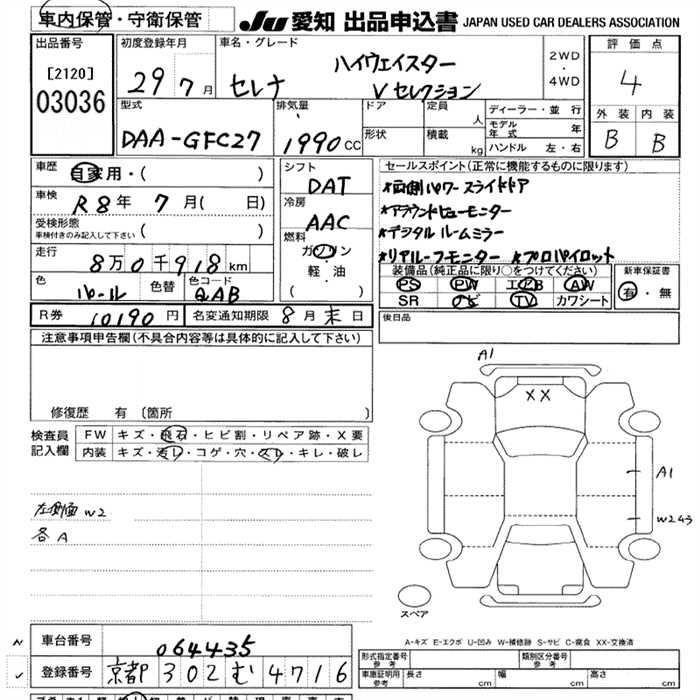 車内保管・守衛保管 JU 愛知 出品申込書 JAPAN USED CAR DEALERS ASSOCIATION
出品番号 [2120] 03036
初度登録年月 29年 7月
車名・グレード セレナ ハイウェイスター Vセレクション
2WD・4WD
評価点 4
外装 内装
B B
型式 DAA-GFC27
排気量 1990cc
ドア 形状
定員 人 積載 kg
ディーラー・並行
モデル年式 年
ハンドル 左・右
車歴 自家用・( )
車検 R8年 7月( 日)
受検形態 車検付きのみ記入して下さい ( )
走行 8万0千918km
色 パール 色替 色コード QAB
シフト DAT
冷房 AAC
燃料 ガソリン 軽・油 ( )
セールスポイント(正常に機能するものに限ります)
★両側パワースライドドア
★アラウンドビューモニター
★デジタルルームミラー
★リアルーフモニター ★プロパイロット
装備品(純正品に限り○をつけてください)
PS PW エアB AW
SR ナビ TV カワシート
新車保証書 有・無
R券 10190円 名変通知期限 8月末日
後日品
注意事項申告欄(不具合内容等は具体的に記入して下さい)
修復歴 有 〔箇所 〕
検査員記入欄 FW キズ・飛石・ヒビ割・リペア跡・X要
内装 キズ・汚レ・コゲ・穴・スレ・キレ・破レ
左側面 W2
各A
A1
XX
A1
W2
スペア
A-キズ E-エクボ U-凹み W-補修跡 S-サビ C-腐食 XX-交換済
車台番号 064435
登録番号 京都 302 む 4716
形式指定番号 参考 類別区分番号 参考
車庫証明用 参考 長さ cm 幅 cm 高さ cm